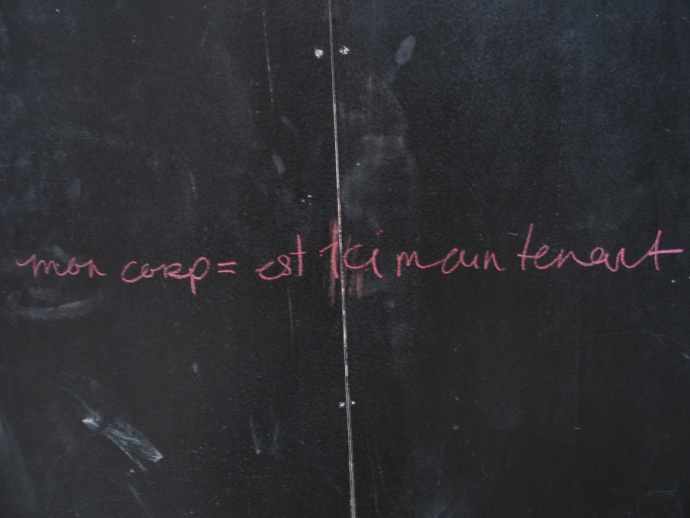 mon corp= est ici maintenant